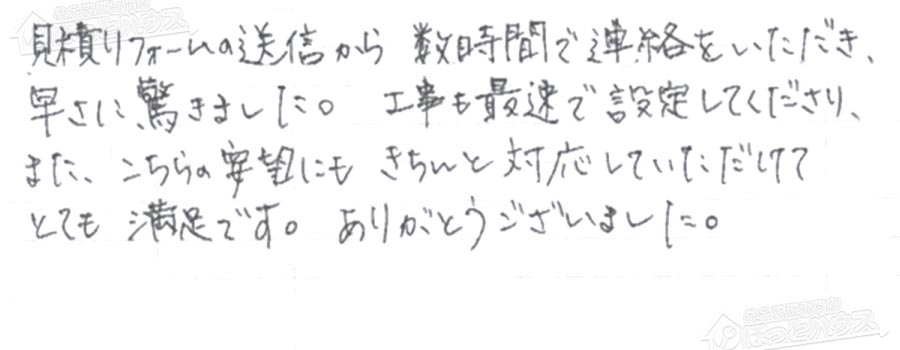 見積りフォームの送信から 数時間で連絡をいただき、
早さに驚きました。 工事も最速で設定してくださり、
また、こちらの要望にも きちんと対応していただけて
とても 満足です。 ありがとうございました。
住宅設備専門店
ほっとハウス